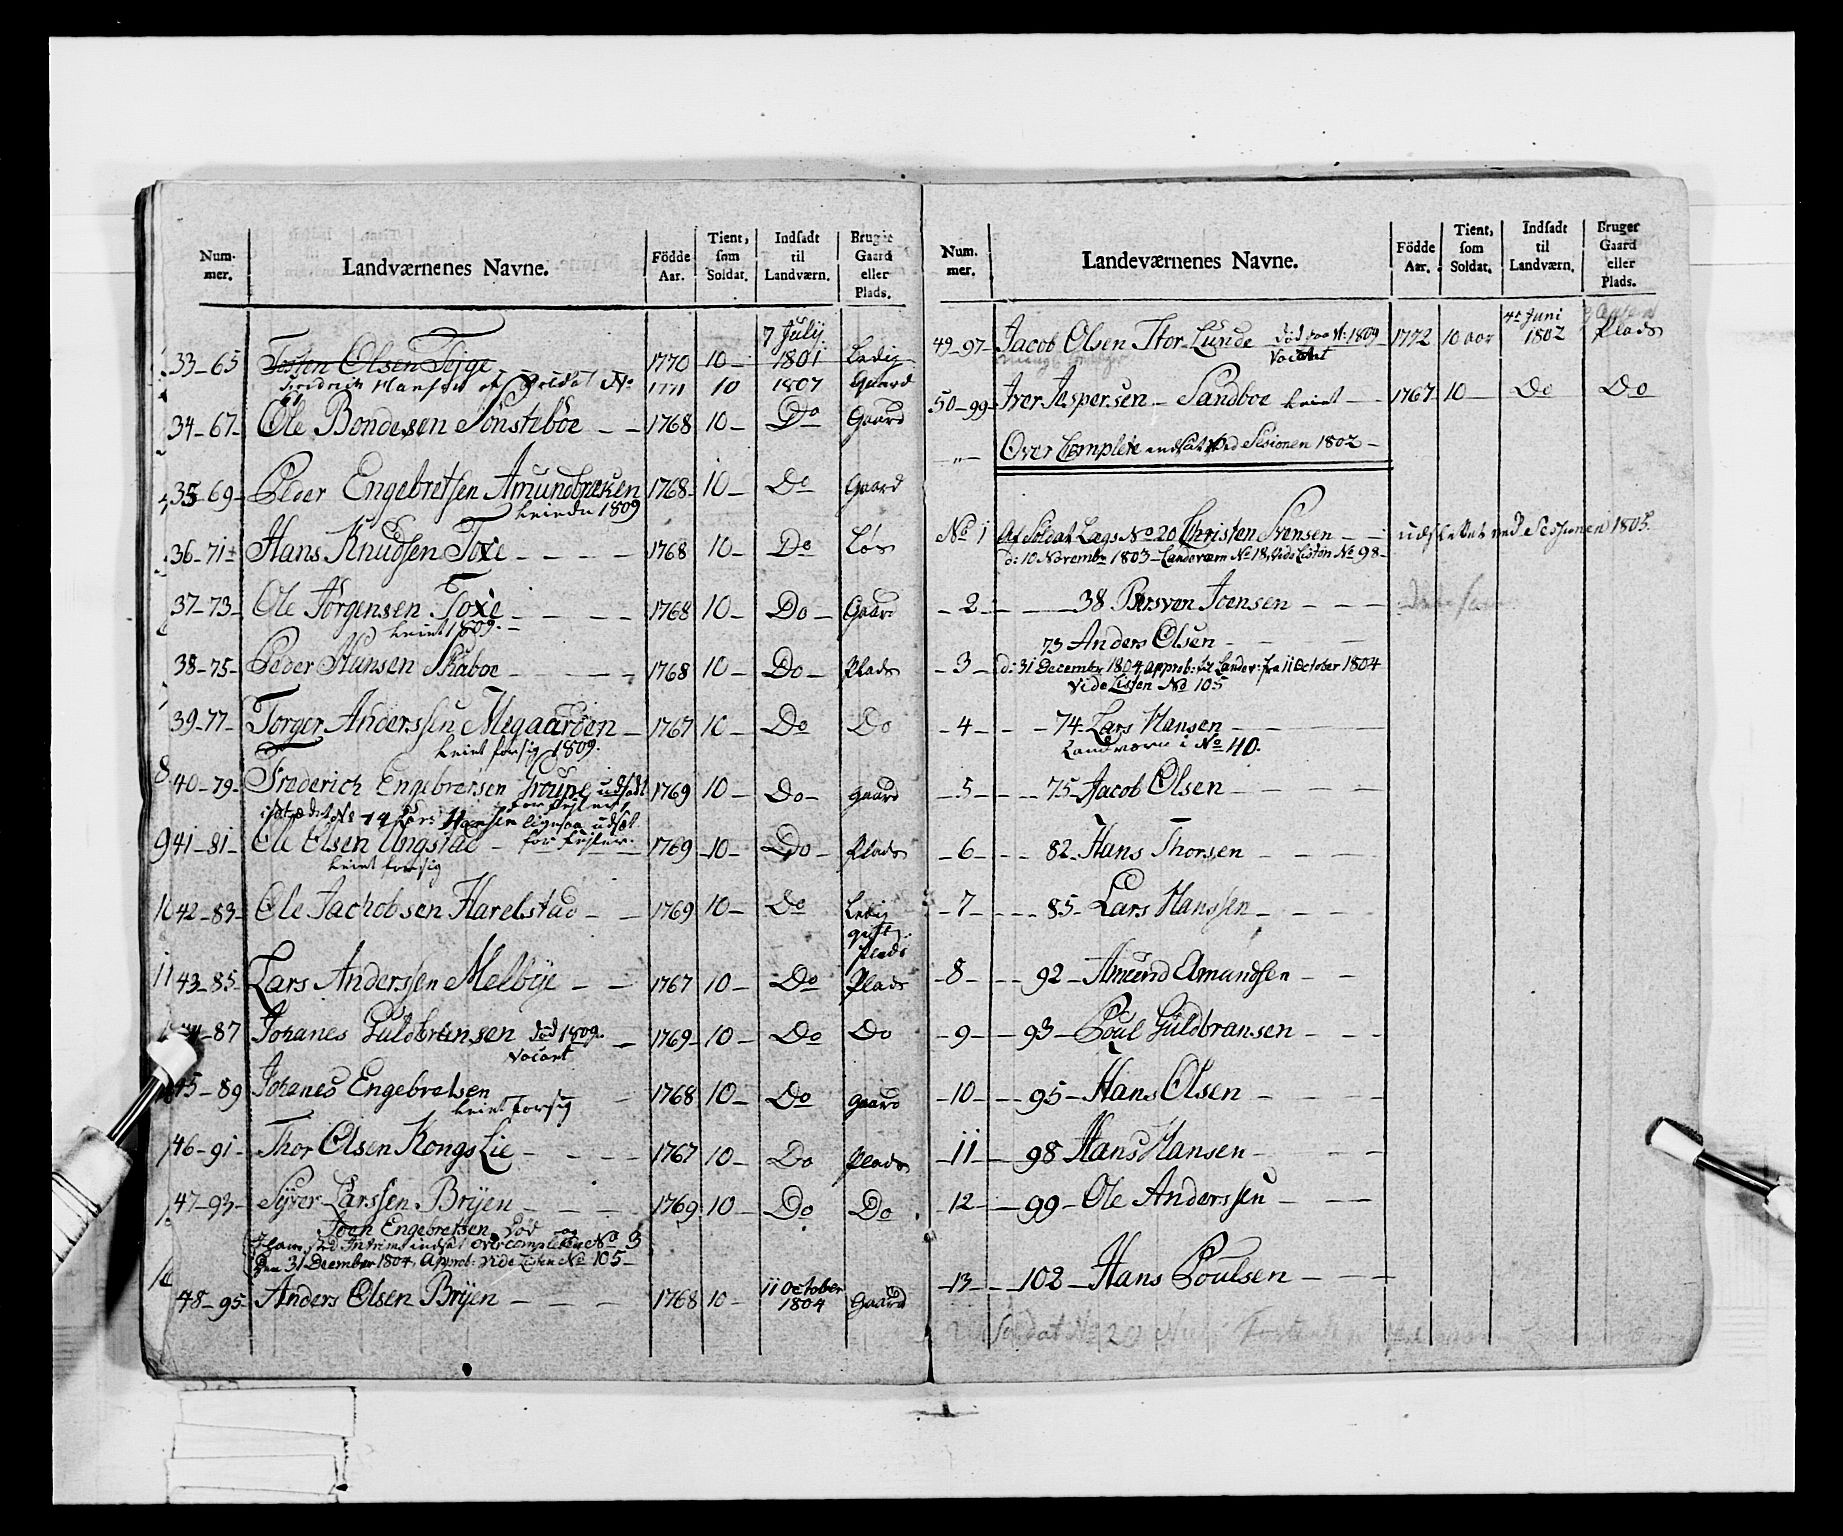 Num-
mer. Landværnenes Navne. Födde Aar. Tient, som Soldat. Indsadt til Landværn. Bruger Gaard eller Plads.
7 July
33-65 Tosten Olsen 1770 10- 1801 Ledig
Fredrich Hansen 1771 10 1807 Gaard
34-67- Ole Bondesen Sönsteböe - - 1768 10- Do Gaard
35-69- Peder Engebretsen Amundbræken 1768- 10- Do Gaard
1809
36-71 Hans Knudsen Toxe - - - - 1768 10- Do Løs
37-73- Ole Jörgensen Toxe - - - - 1768 10- Do- Gaard
1809.
38-75- Peder Hansen Skaboe - - - - 1768 10- Do- Plads
39-77- Torger Anderssen Megaarden - 1767 10 Do Do
forsig 1809.
8. 40-79- Frederich Engebretsen udsadt 1769 10- Do- gaard
No 14 Lars Hansen ligesaa udsat
9 41-81- Ole Olsen Ungstad - for 1769 -10- Do- Plads
forsig
10 42-83- Ole Jachobsen Harelstad - - 1769 10- Do Ledig
gift
Plads
11 43-85 Lars Anderssen Melbye - - 1767 10- Do Plads
-87 Johanes Guldbransen död 1809. - 1769- 10- Do Do
Vacant
45-89 Johanes Engebretsen - 1768 10- Do gaard
forsig
46-91- Thor Olsen Kongs Lie - - - 1767 10- Do Plads
47-93- Syver Larssen Bryen - - - 1769 10- Do Do
Joen Engebretsen Död og
indsat overcomplette No 3
den 31 December 1804, Approb: Vide Listen No 105-
11 October
48-95 Anders Olsen Bryen - - - 1768 10- 1804 Gaard
Num.
mer. Landeværnenes Navne. Födde Aar. Tient, som Soldat. Indsadt til Landværn. Bruger Gaard eller Plads.
4de Juni
49-97- Jacob Olsen Stor Lunde död 1809 1772 10 aar 1802 Plads
Vacant
50-99- Iver Jespersen - Sandboe - - 1767 10- Do Do
-"- Over Complete indsat ved Sesionen 1802-
No 1 Af Soldat Lægs No 20 Christen Svensen - - udslettet ved Sessionen 1805.
d: 10 Novembr 1803- Landeværn No 18, Vide Listen No 98-
-2- 38 Joensen - - -
73 Anders Olsen - - - -
-3- d: 31 Decembr 1804, approb: til Landev: fra 11 October 1804
Vide Listen No 105
-4- - - 74- Lars Hansen - - -
Landværn i No 40.
-5- - - 75- Jacob Olsen - - - -
-6- - - 82- Hans Thorsen - - - -
-7- - - - 85- Lars Hanssen - - - -
-8- - - 92- Amund Amundsen - -
-9- - 93- Poul Guldbransen - - -
-10- - - 95- Hans Olsen - - - -
-11- - 98 Hans Hansen - - - -
12- - 99- Ole Anderssen - - -
-13- - - 102- Hans Poulsen - - -
Soldat No 20